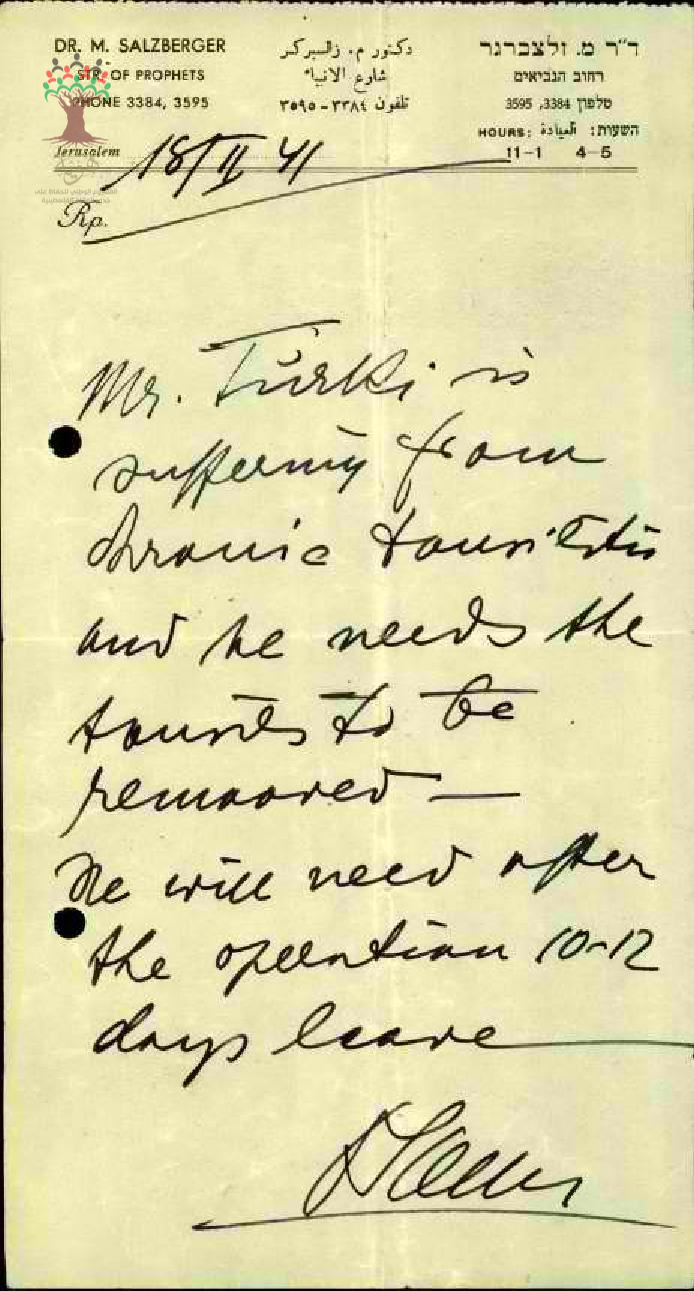 DR. M. SALZBERGER
STR. OF PROPHETS
PHONE 3384, 3595
دكتور م. زالسبركر
شارع الانبياء
تلفون ٣٣٨٤ - ٣٥٩٥
ד"ר מ. זלצברגר
רחוב הנביאים
טלפון 3384, 3595
HOURS: العيادة: השעות:
11-1 4-5
Jerusalem 18/II 41
Rp.
Mr. Turki is
suffering from
chronic tonsilitis
and he needs the
tonsils to be
remooved —
He will need after
the operation 10-12
days leave